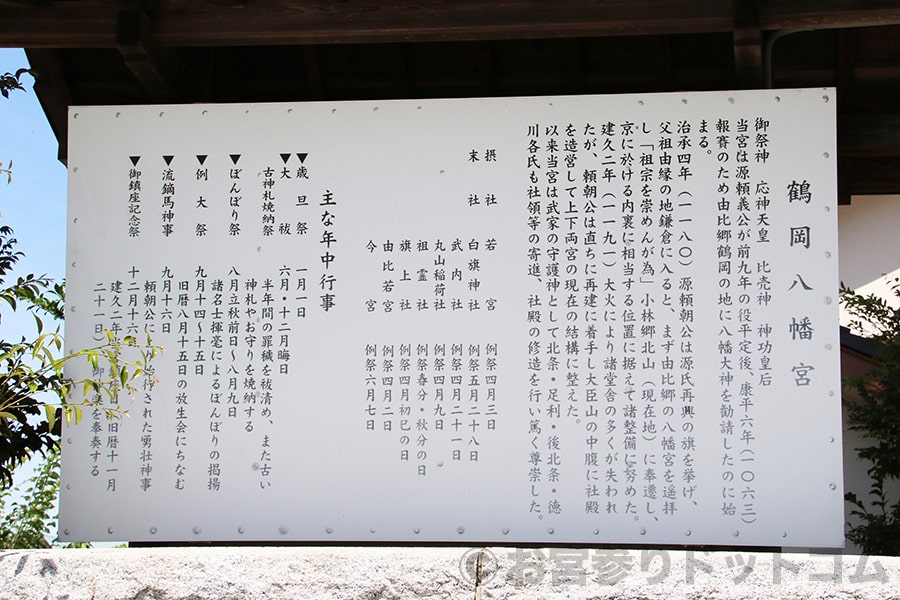 鶴岡八幡宮
御祭神　応神天皇　比売神　神功皇后
当宮は源頼義公が前九年の役平定後、康平六年(一〇六三)
報賽のため由比郷鶴岡の地に八幡大神を勧請したのに始
まる。
治承四年(一一八〇)源頼朝公は源氏再興の旗を挙げ、
父祖由縁の地鎌倉に入ると、まず由比郷の八幡宮を遥拝
し「祖宗を崇めんが為」小林郷北山(現在地)に奉遷し、
京に於ける内裏に相当する位置に据えて諸整備に努めた。
建久二年(一一九一)大火により諸堂舎の多くが失われ
たが、頼朝公は直ちに再建に着手し大臣山の中腹に社殿
を造営して上下両宮の現在の結構に整えた。
以来当宮は武家の守護神として北条・足利・後北条・徳
川各氏も社領等の寄進、社殿の修造を行い篤く尊崇した。
摂社　若宮　例祭四月三日
末社　白旗神社　例祭五月二十八日
武内社　例祭四月二十一日
丸山稲荷社　例祭四月九日
祖霊社　例祭春分・秋分の日
旗上社　例祭四月初巳の日
由比若宮　例祭四月二日
今宮　例祭六月七日
主な年中行事
▼歳旦祭　一月一日
▼大祓　六月・十二月晦日
古神札焼納祭　半年間の罪穢を祓清め、また古い
神札やお守りを焼納する
▼ぼんぼり祭　八月立秋前日〜八月九日
諸名士揮毫によるぼんぼりの掲揚
▼例大祭　九月十四〜十五日
旧暦八月十五日の放生会にちなむ
▼流鏑馬神事　九月十六日
頼朝公に　始行された勇壮神事
▼御鎮座記念祭　十二月十六
建久二年　旧暦十一月
二十一日)　御　楽を奉奏する
©お宮参りドットコム